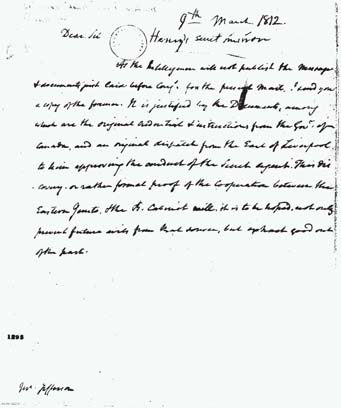 9th March 1812.
Dear Sir
Henry's secret mission
As the Intelligencer will not publish the Message
& documents just laid before Congs. for the present Mail, I send you
a copy of the former. It is justified by the Documents, among
which are the original Credential & instructions from the Govr. of
Canada, and an original dispatch from the Earl of Liverpool
to him approving the conduct of the Secret Agent. This dis
covery, or rather formal proof of the Cooperation between the
Eastern Junto, & the B. Cabinet will, it is to be hoped, not only
prevent future evils from that source, but extract good out
of the past.
1293
Jefferson